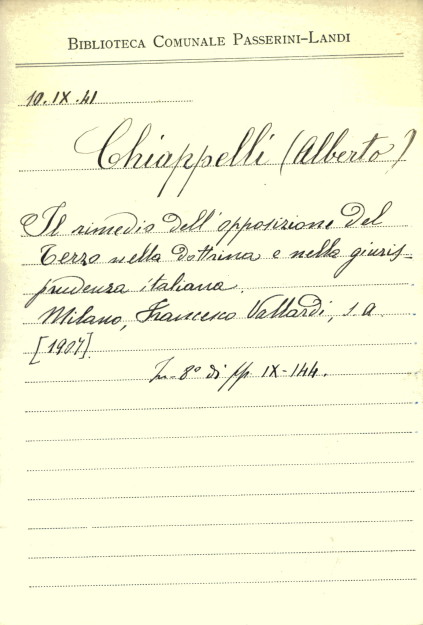 BIBLIOTECA COMUNALE PASSERINI-LANDI
10.IX.41
Chiappelli (Alberto)
Il rimedio dell'opposizione del
Terzo nella dottrina e nella giuris-
prudenza italiana.
Milano, Francesco Vallardi, s.a.
[1907].
In-8° di pp IX-144.